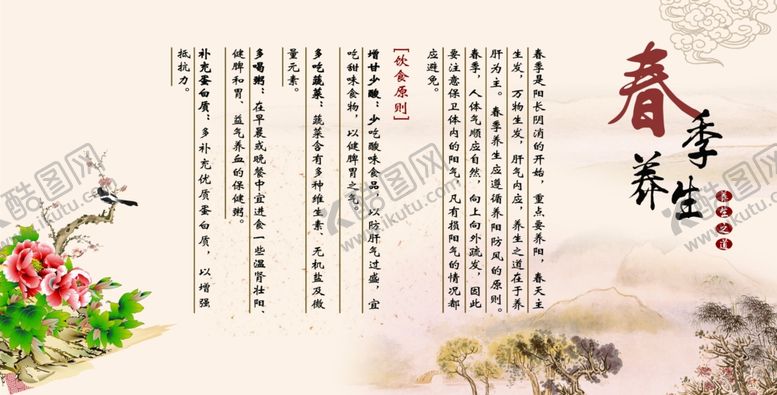 春季养生
养生之道
春季是阳长阴消的开始，重点要养阳，春天主
生发，万物生发，肝气内应，养生之道在于养
肝为主。春季养生应遵循养阳防风的原则。
春季，人体气顺应自然，向上向外疏发，因此
要注意保卫体内的阳气，凡有损阳气的情况都
应避免。
[饮食原则]
增甘少酸：少吃酸味食品，以防肝气过盛，宜
吃甜味食物，以健脾胃之气。
多吃蔬菜：蔬菜含有多种维生素、无机盐及微
量元素。
多喝粥：在早晨或晚餐中宜进食一些温肾壮阳、
健脾和胃、益气养血的保健粥。
补充蛋白质：多补充优质蛋白质，以增强
抵抗力。
酷图网
www.ikutu.com